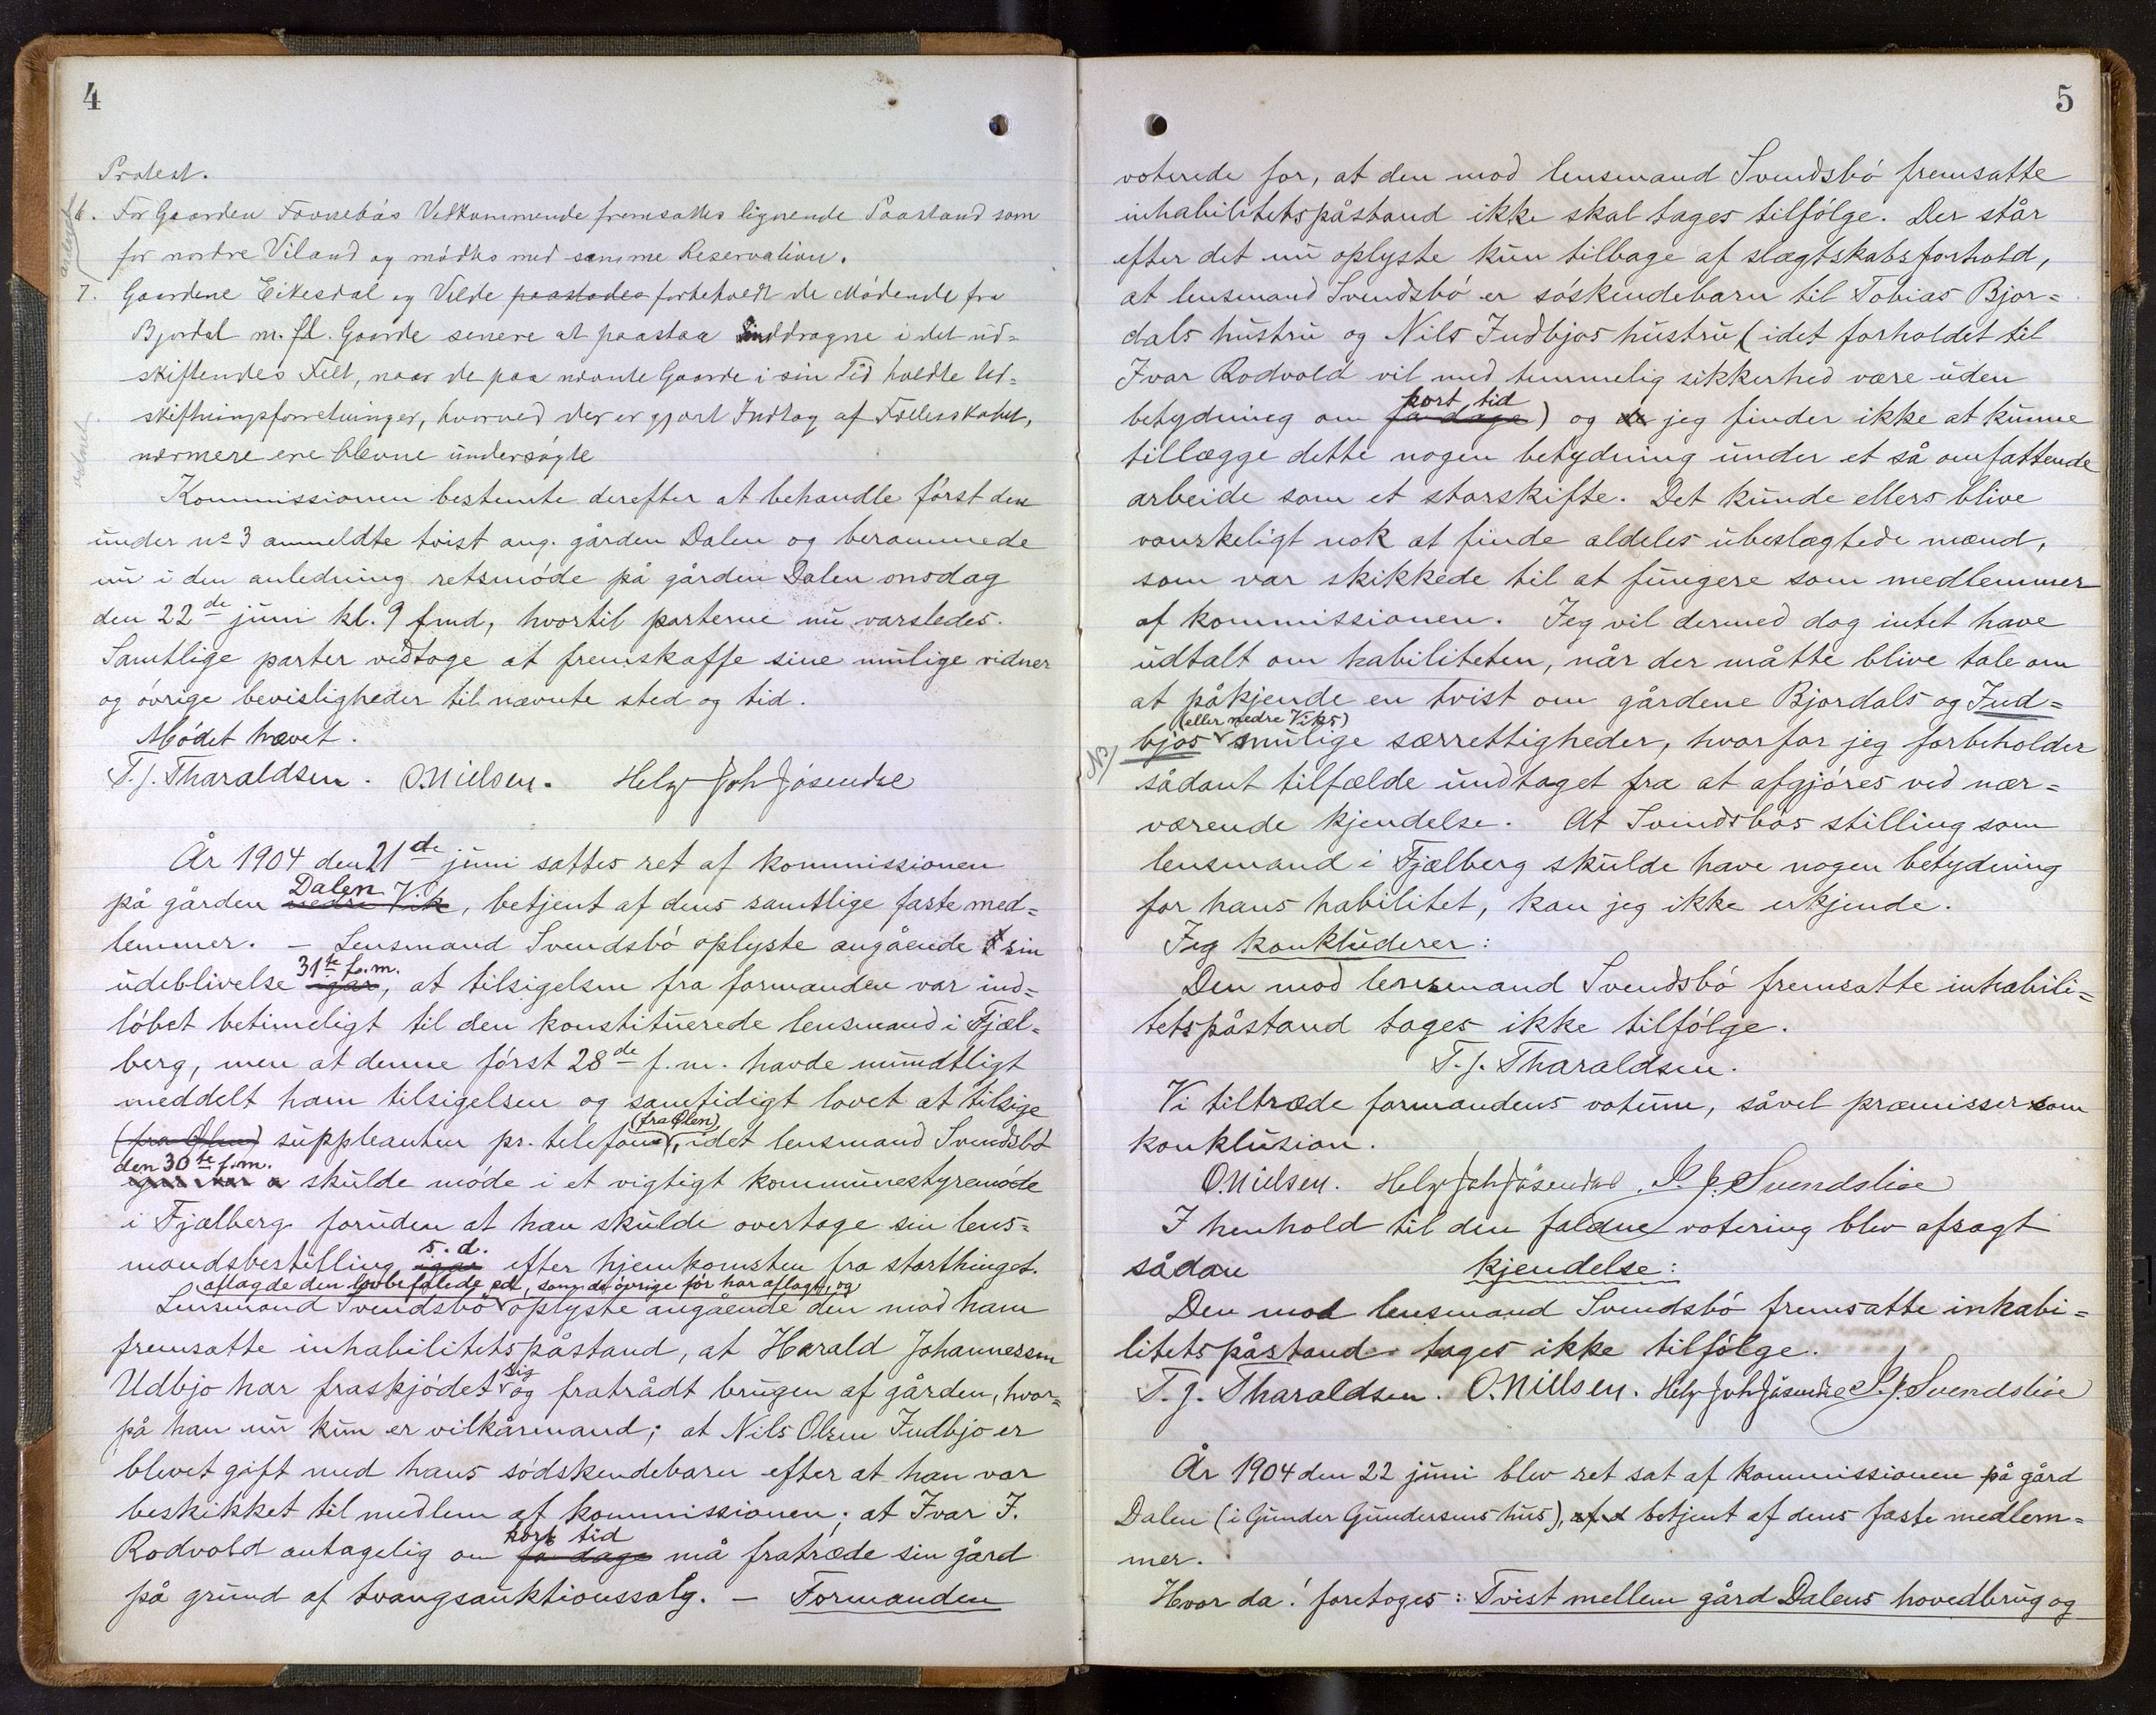 4
Protest.
6. For Gaarden Fovnebøs Vedkommende fremsattes lignende Paastand som
for nordre Viland og mødtes med samme Reservation.
7. Gaardene Eikesdal og Velde paastodes forbeholdt de Mødende fra
Bjordal m. fl. Gaarde senere at paastaa inddragne i det ud=
skiftendes Felt, naar de paa nævnte Gaarde i sin Tid holdte Ud=
skiftningsforretninger, hvorved der er gjort Indtag af Fællesskabet,
nærmere ere blevne undersøgte
Kommissionen bestemte derefter at behandle først den
under no 3 anmeldte tvist ang. gården Dalen og berammede
nu i den anledning retsmøde på gården Dalen onsdag
den 22de juni kl. 9 fmd, hvortil parterne nu varsledes.
Samtlige parter vedtoge at fremskaffe sine mulige vidner
og øvrige bevisligheder til nævnte sted og tid.
Mødet hævet.
T. J. Tharaldsen. O. Nielsen. Helge Joh Jøsendal
År 1904 den 21de juni sattes ret af kommissionen
Dalen
på gården nedre Vik, betjent af dens samtlige faste med=
lemmer. – Lensmand Svendsbø oplyste angående sin
31te f.m.
udeblivelse igår, at tilsigelsen fra formanden var ind=
løbet betimeligt til den konstituerede lensmand i Fjæl=
berg, men at denne først 28de f.m. havde mundtligt
meddelt ham tilsigelsen og samtidigt lovet at tilsige
(fra Ølen)
(fra Ølen) suppleanten pr. telefon, idet lensmand Svendsbø
den 30te f.m.
igår var skulde møde i et vigtigt kommunestyremøde
i Fjælberg foruden at han skulde overtage sin lens=
s. d.
mandsbestilling igår efter hjemkomsten fra storthinget.
aflagde den lovbefalede ed, som de øvrige før har aflagt, og
Lensmand Svendsbø oplyste angående den mod ham
fremsatte inhabilitetspåstand, at Harald Johannessen
sig
Udbjo har fraskjødet og fratrådt brugen af gården, hvor=
på han nu kun er vilkårmand; at Nils Olsen Indbjo er
blevet gift med hans sødskendebarn efter at han var
beskikket til medlem af kommissionen; at Ivar I.
kort tid
Rodvold antagelig om få dage må fratræde sin gård
på grund af tvangsauktionssalg. – Formanden
5
voterede for, at den mod lensmand Svendsbø fremsatte
inhabilitetspåstand ikke skal tages tilfølge. Der står
efter det nu oplyste kun tilbage af slægtskabsforhold,
at lensmand Svendsbø er søskendebarn til Tobias Bjor=
dals hustru og Nils Indbjos hustru (idet forholdet til
Ivar Rodvold vil med temmelig sikkerhed være uden
kort tid
betydning om få dage) og de jeg finder ikke at kunne
tillægge dette nogen betydning under et så omfattende
arbeide som et storskifte. Det kunde ellers blive
vanskeligt nok at finde aldeles ubeslægtede mænd,
som var skikkede til at fungere som medlemmer
af kommissionen. Jeg vil dermed dog intet have
udtalt om habiliteten, når der måtte blive tale om
at påkjende en tvist om gårdene Bjordals og Ind=
(eller nedre Viks)
NB bjos mulige særrettigheder, hvorfor jeg forbeholder
sådant tilfælde undtaget fra at afgjøres ved nær=
værende kjendelse. At Svendsbøs stilling som
lensmand i Fjælberg skulde have nogen betydning
for hans habilitet, kan jeg ikke erkjende.
Jeg konkluderer:
Den mod lensmand Svendsbø fremsatte inhabili=
tetspåstand tages ikke tilfølge.
T. J. Tharaldsen.
Vi tiltræde formandens votum, såvel præmisser som
konklusion.
O. Nielsen. Helge Joh Jøsendal. P. J. Svendsbøe
I henhold til den faldne votering blev afsagt
sådan kjendelse:
Den mod lensmand Svendsbø fremsatte inhabi=
litetspåstand tages ikke tilfølge.
T. J. Tharaldsen. O. Nielsen. Helge Joh Jøsendal P. J. Svendsbøe
År 1904 den 22 juni blev ret sat af kommissionen på gård
Dalen (i Gunder Gundersens hus), af d betjent af dens faste medlem=
mer.
Hvor da! foretoges: Tvist mellem gård Dalens hovedbrug og